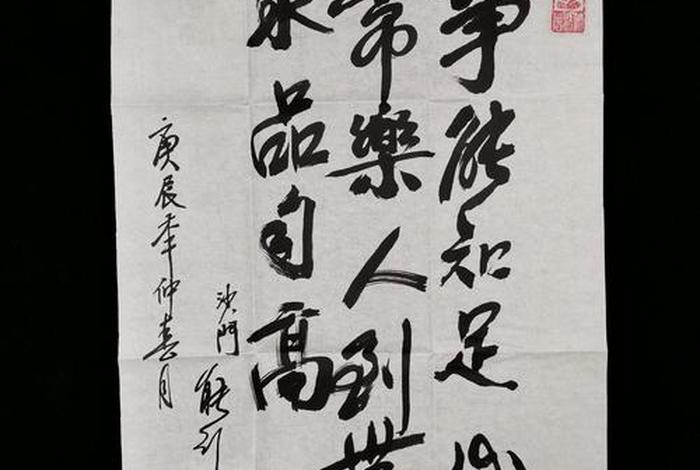 事能知足心
常樂人到無
求品自高
沙門能
庚辰年仲春月